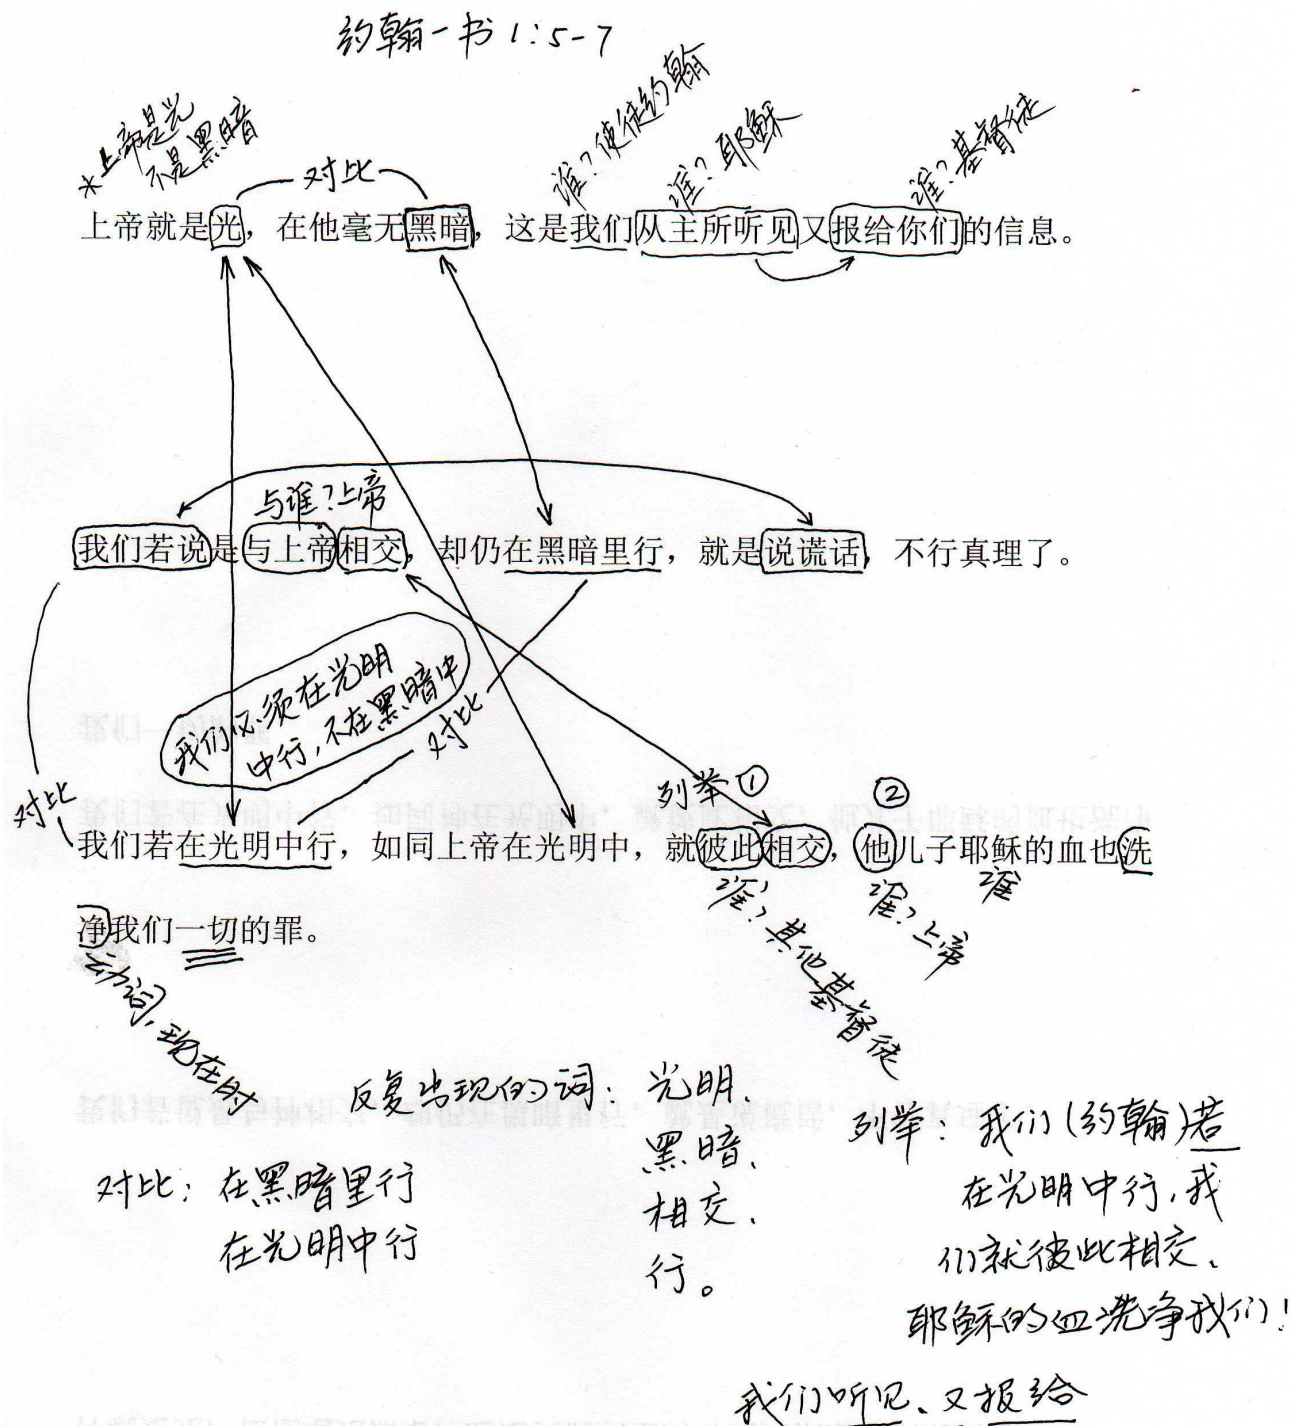 约翰一书 1:5-7
*上帝是光
不是黑暗
对比
谁?使徒约翰
谁?耶稣
谁?基督徒
上帝就是光，在他毫无黑暗，这是我们从主所听见又报给你们的信息。
与谁?上帝
我们若说是与上帝相交，却仍在黑暗里行，就是说谎话，不行真理了。
我们必须在光明
中行,不在黑暗中
对比
对比
列举①
②
我们若在光明中行，如同上帝在光明中，就彼此相交，他儿子耶稣的血也洗
谁?其他基督徒
谁?上帝
谁
净我们一切的罪。
动词,现在时
反复出现的词: 光明、
黑暗、
相交、
行。
对比: 在黑暗里行
在光明中行
列举: 我们(约翰)若
在光明中行,我
们就彼此相交、
耶稣的血洗净我们!
我们听见、又报给